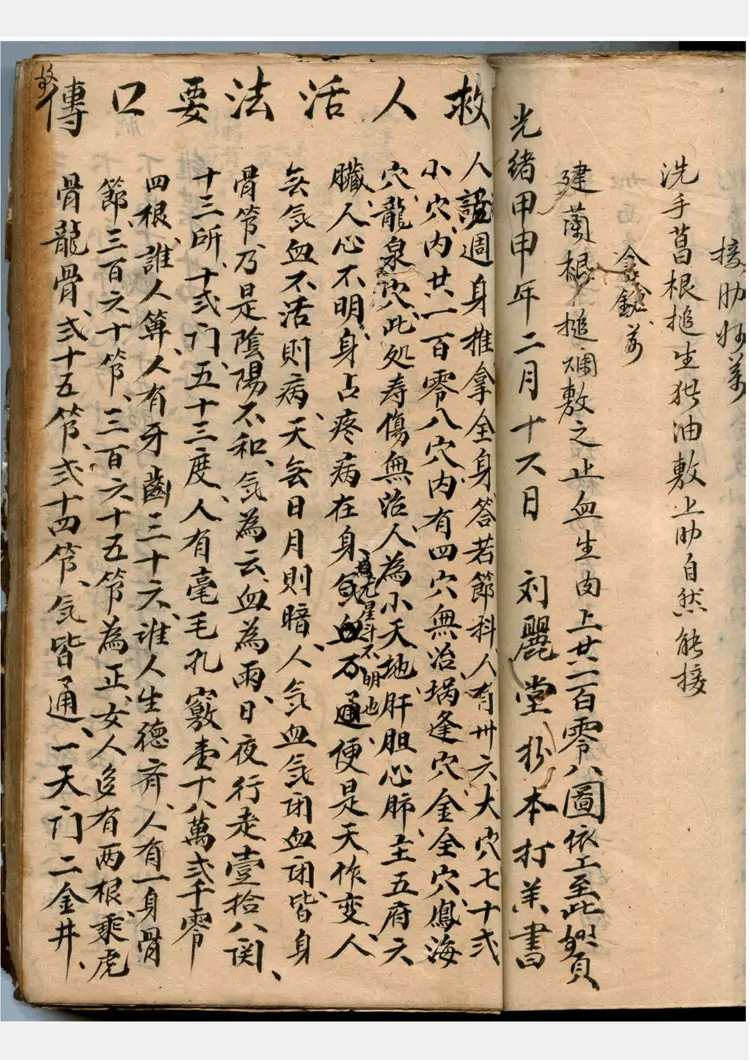 接肋好药
洗手菖根搥生猪油敷上肋自然能接
金鎗药
建蘭根搥爛敷之止血生肉上共一百零八圖依工至此貭
光緒甲申年二月十六日 刘麗堂抄本打药書
救人活法要口傳
人話週身推拿全身答若節科人有卅六大穴七十弍
小穴内共一百零八穴内有四穴無治埚逢穴金全穴鳳海
穴龍泉穴此処寿傷無治人為小天地肝胆心肺主五府六
臟人心不明身占疼病在身氣血不通便是天作变人
為尤星斗不明也
無氣血不活則病天無日月則暗人氣血氣闭血闭皆身
骨节乃是隂陽不和氣為云血為雨日夜行走壹拾八関
十三所十弍门五十三度人有毫毛孔竅壹十八萬弍千零
四根誰人筭人有牙齒三十六誰人生德齐人有一身骨
節三百六十节三百六十五节為正女人足有两根乘虎
骨龍骨弍十五节弍十四节气皆通一天门二金井